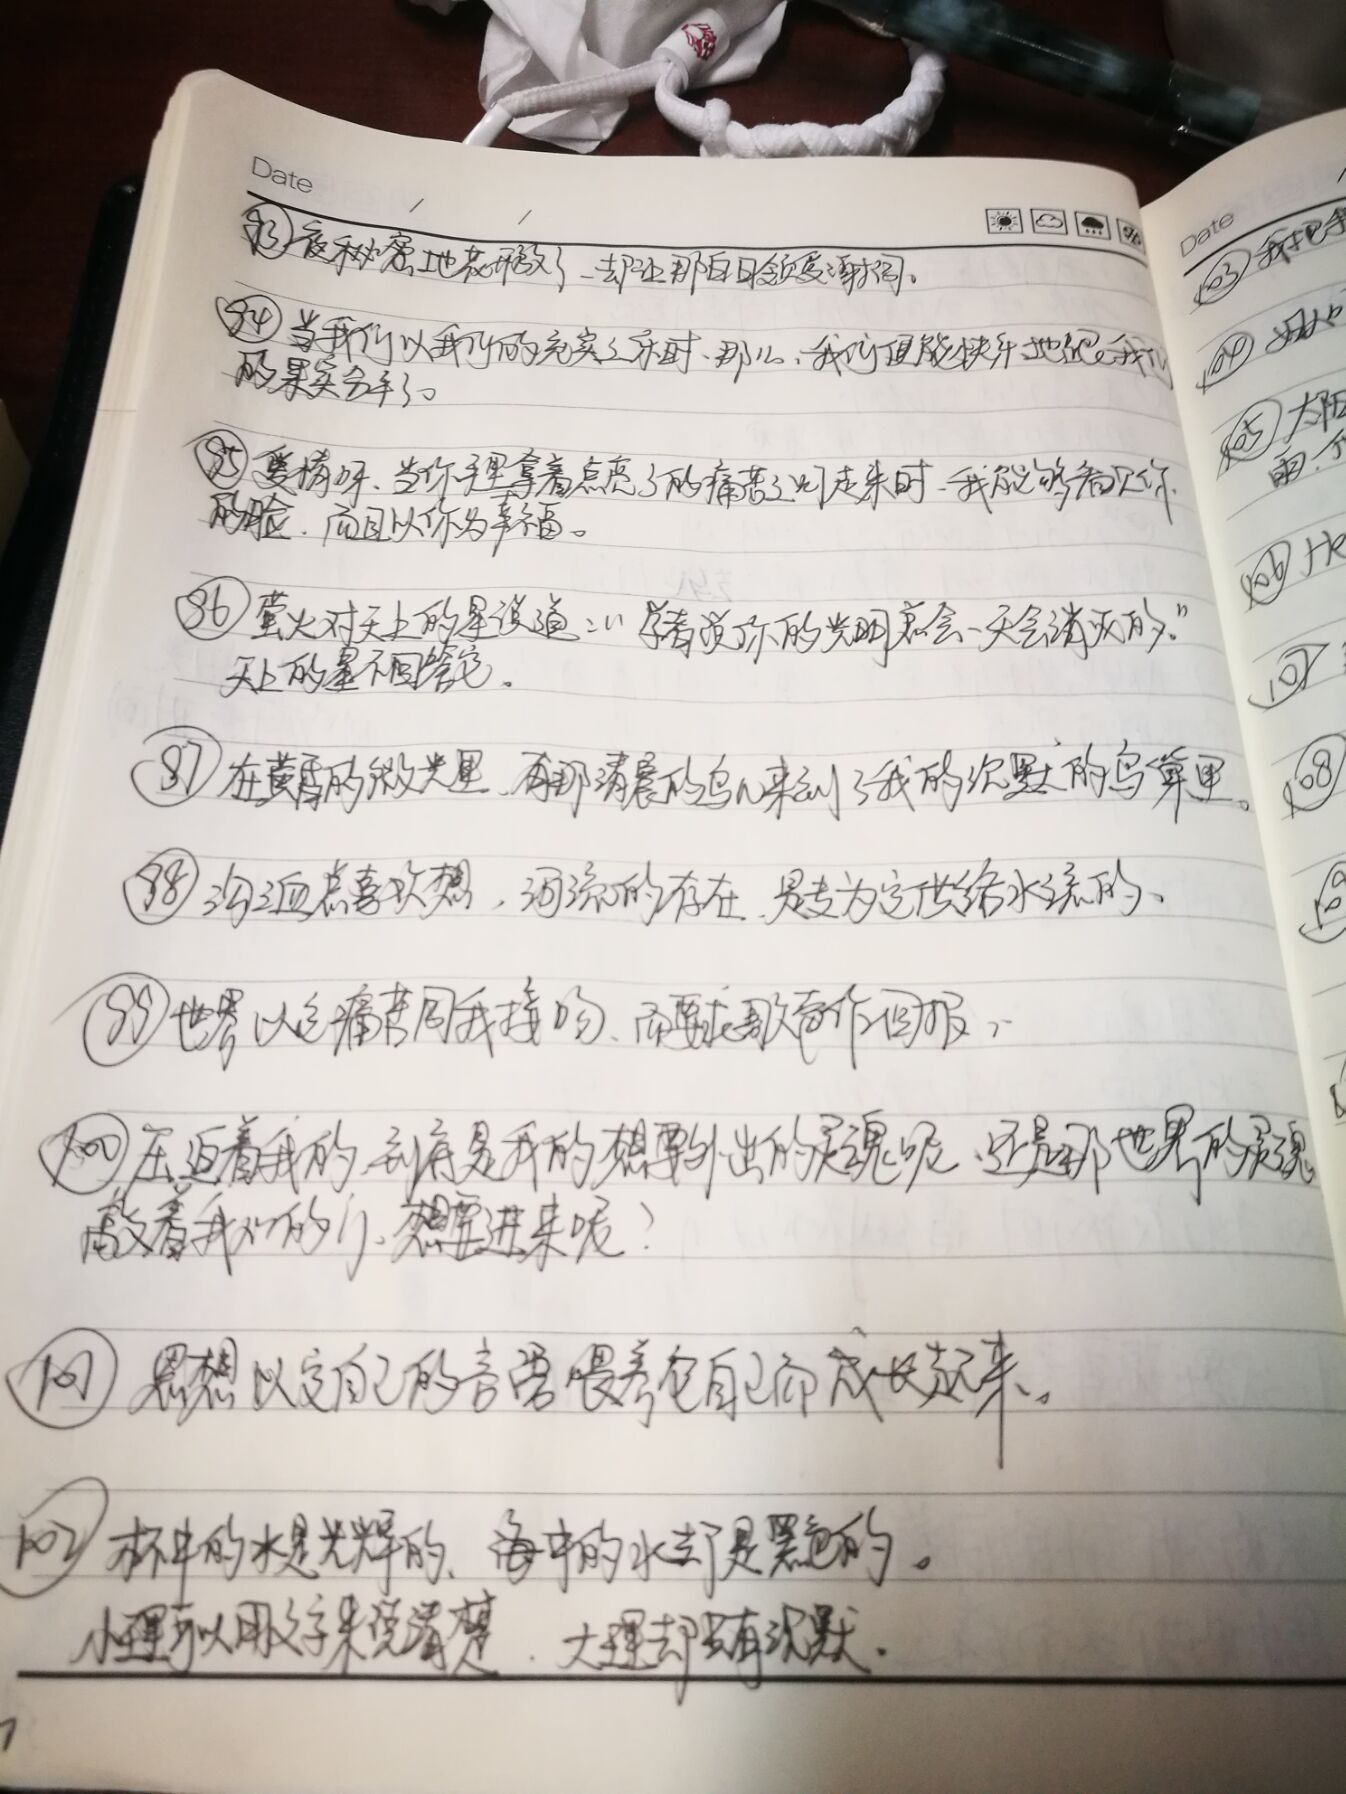 Date
93 夜秘密地把花开放了、却让那白日领受谢词。
94 当我们以我们的充实为乐时、那么、我们便能快乐地把我们
的果实分手了。
95 爱情呀、当你手里拿着点亮了的痛苦之灯走来时、我能够看见你
的脸、而且以你为幸福。
96 萤火对天上的星说道:"学者说你的光明总会一天会消灭的。"
天上的星不回答它。
97 在黄昏的微光里、有那清晨的鸟儿来到了我的沉默的鸟巢里。
98 沟洫总喜欢想、河流的存在、是专为它供给水流的、
99 世界以它痛苦同我接吻、而要求歌声作回报、
100 压迫着我的、到底是我的想要外出的灵魂呢、还是那世界的灵魂
敲着我心的门、想要进来呢?
101 思想以它自己的言语喂养它自己而成长起来、。
102 杯中的水是光辉的、海中的水却是黑色的。
小理可以用文字来说清楚、大理却只有沉默。
Date
103 我把
104
105 太阳
雨、
106
107
108
109